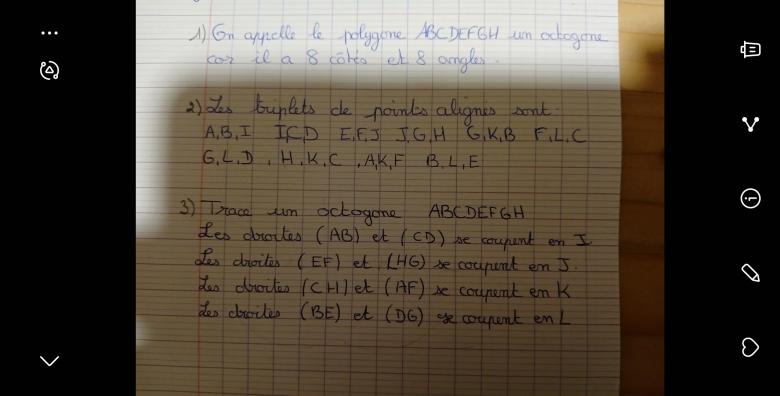 1) On appelle le polygone ABCDEFGH un octogone
car il a 8 côtés et 8 angles.
2) Les triplets de points alignés sont:
A,B,I I,C,D E,F,J J,G,H G,K,B F,L,C
G,L,D , H,K,C , A,K,F B,L,E
3) Trace un octogone ABCDEFGH
Les droites (AB) et (CD) se coupent en I
Les droites (EF) et (HG) se coupent en J.
Les droites (CH) et (AF) se coupent en K
Les droites (BE) et (DG) se coupent en L